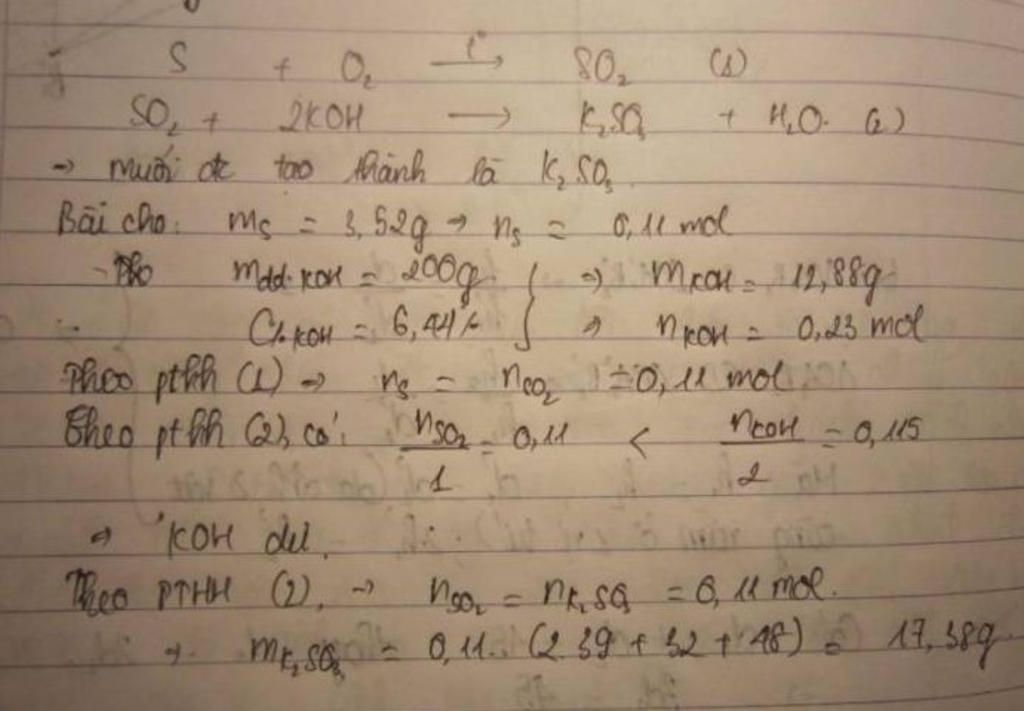 S + O₂ —t°→ SO₂ (1)
SO₂ + 2KOH → K₂SO₃ + H₂O. (2)
→ muối đc tạo thành là K₂SO₃.
Bài cho: mS = 3,52g → nS = 0,11 mol
mdd.KOH = 200g } → mKOH = 12,88g
C%KOH = 6,44% } → nKOH = 0,23 mol
Theo pthh (1) → nS = nSO₂ = 0,11 mol
Theo pthh (2) có: nSO₂/1 = 0,11 < nKOH/2 = 0,115
→ KOH dư.
Theo PTHH (2). → nSO₂ = nK₂SO₃ = 0,11 mol.
→ mK₂SO₃ = 0,11. (2.39 + 32 + 48) = 17,38g